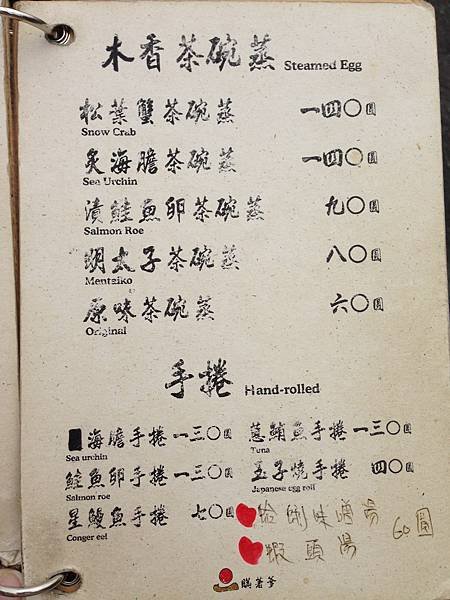 木香茶碗蒸 Steamed Egg
松葉蟹茶碗蒸 一四〇圓
Snow Crab
炙海膽茶碗蒸 一四〇圓
Sea Urchin
漬鮭魚卵茶碗蒸 九〇圓
Salmon Roe
明太子茶碗蒸 八〇圓
Mentaiko
原味茶碗蒸 六〇圓
Original
手捲 Hand-rolled
海膽手捲 一三〇圓
Sea urchin
鮭魚卵手捲 一三〇圓
Salmon roe
星鰻魚手捲 七〇圓
Conger eel
蔥鮪魚手捲 一三〇圓
Tuna
玉子燒手捲 四〇圓
Japanese egg roll
蛤蜊味噌湯
蝦頭湯
60圓
瞞著爹